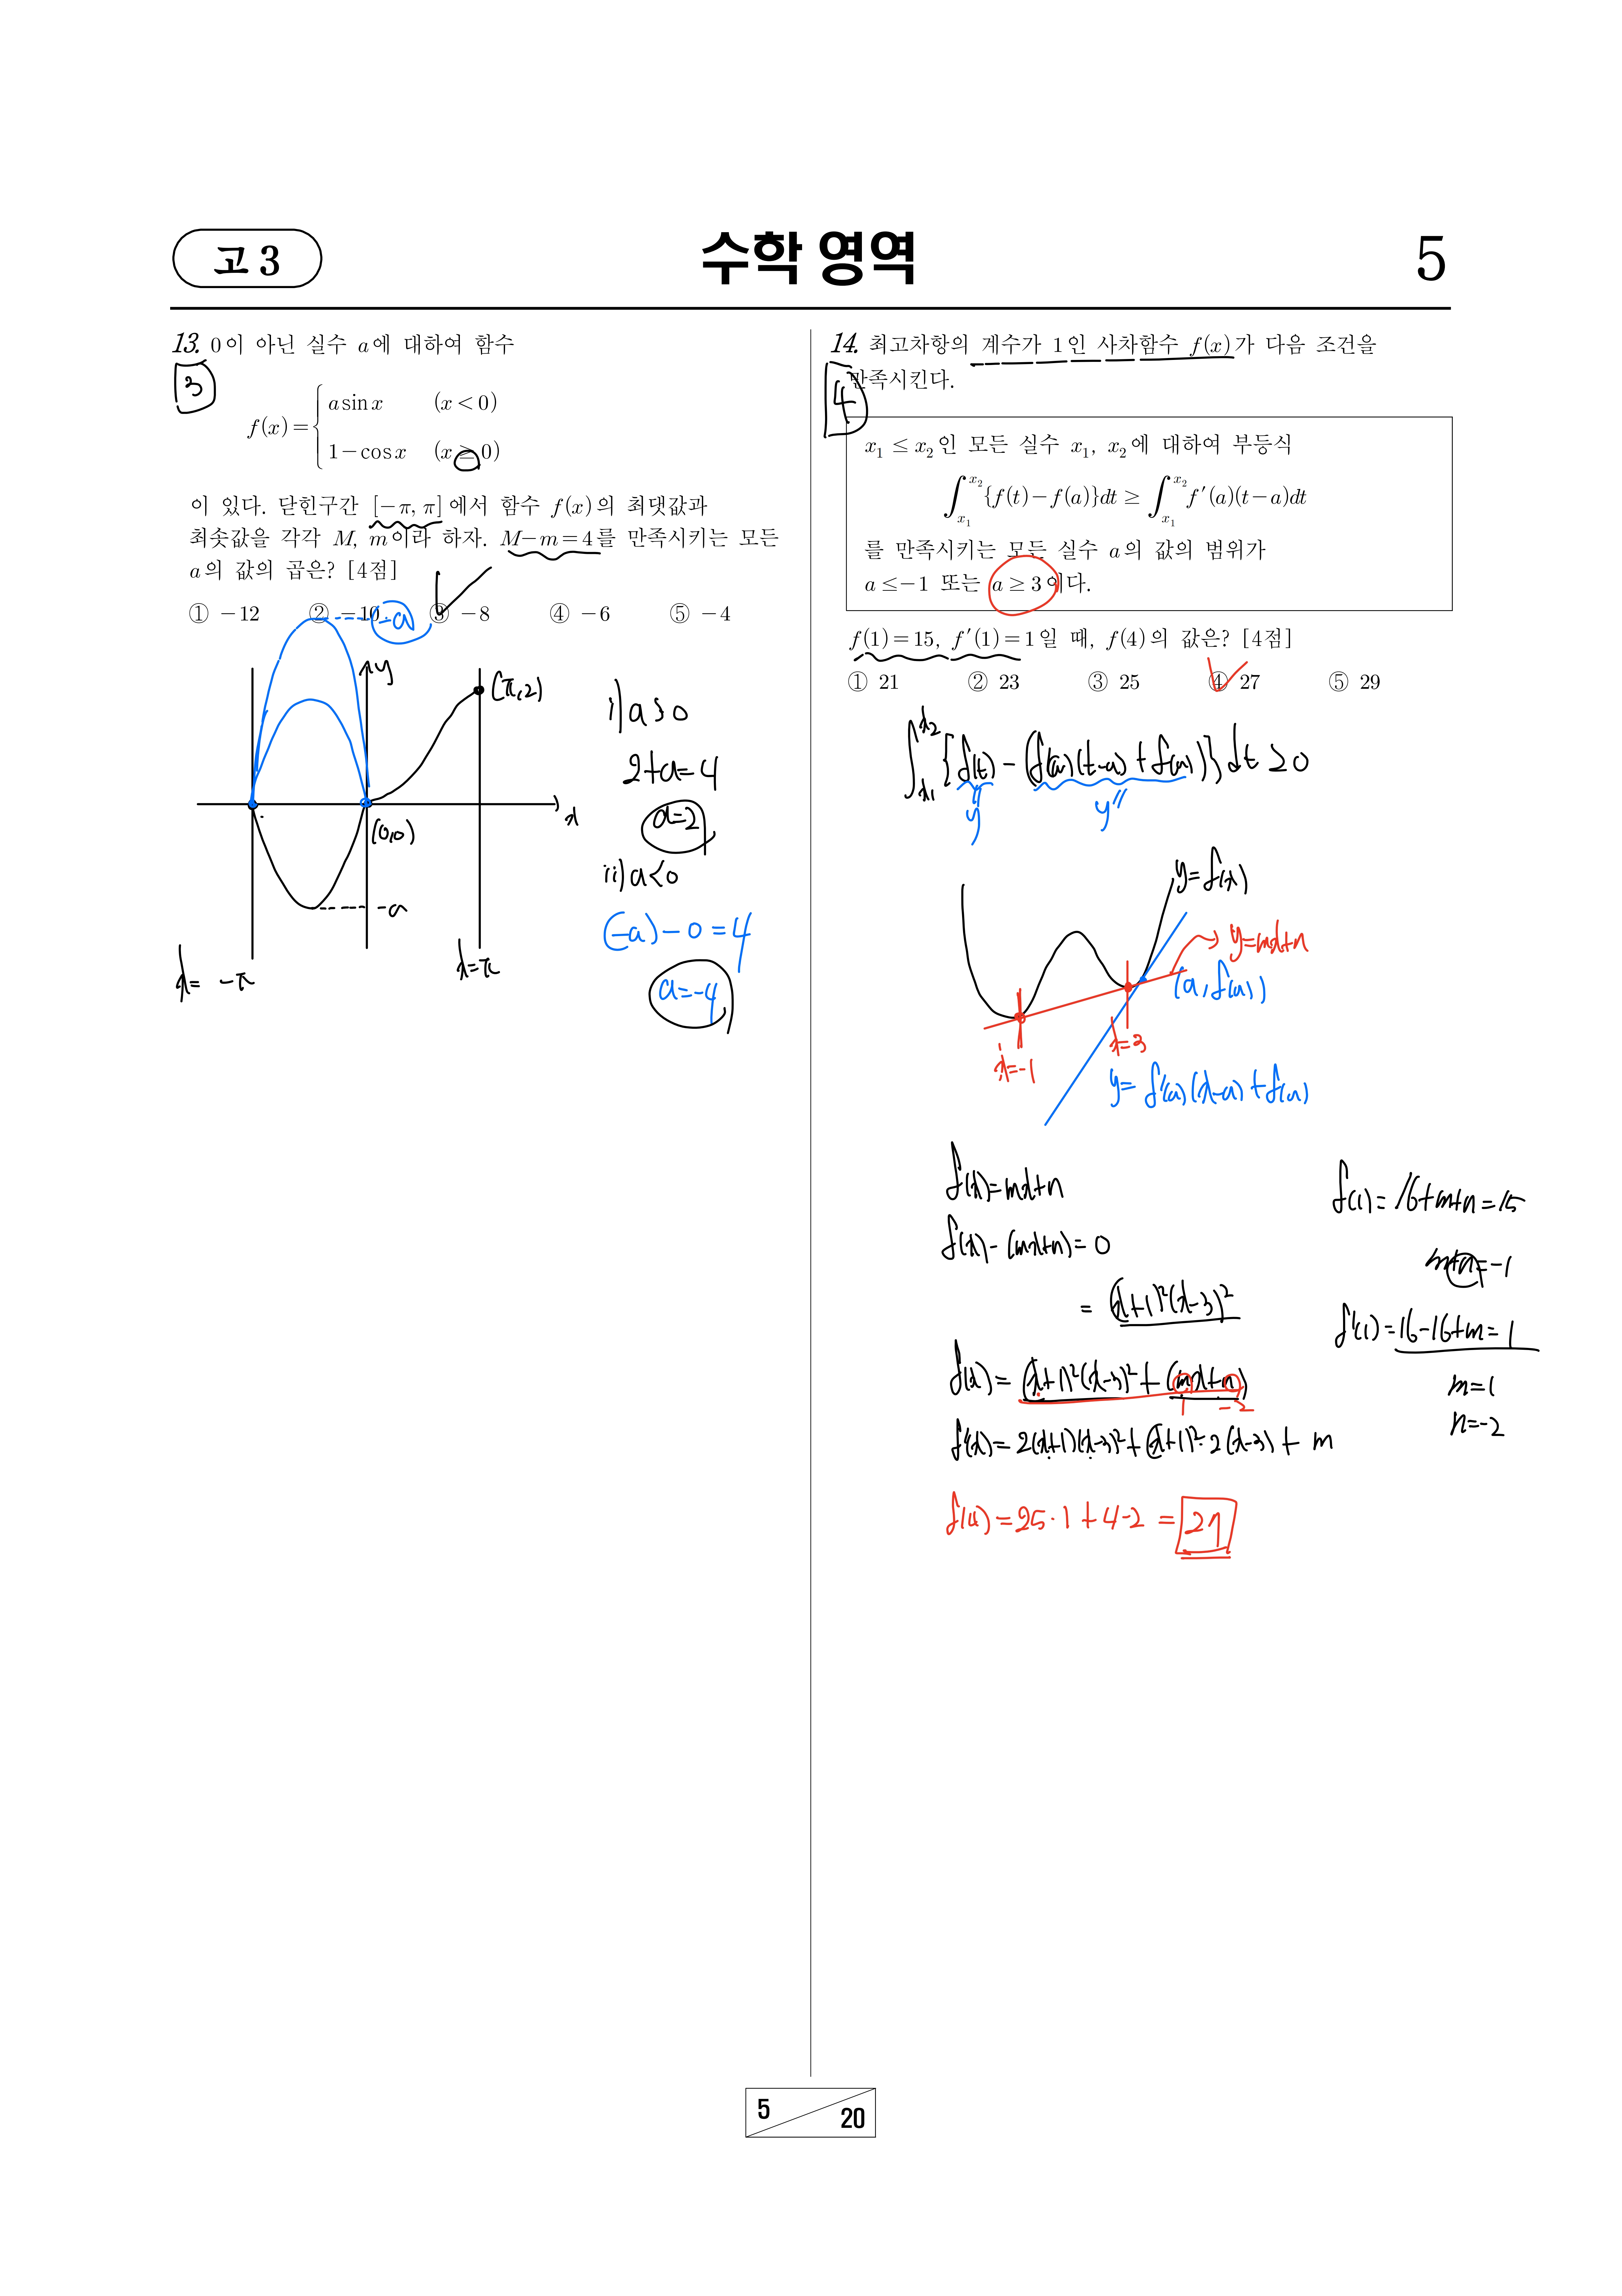 고 3
수학 영역
5
13. 0이 아닌 실수 a에 대하여 함수
3
f(x) = { a sin x (x < 0)
1 − cos x (x ≥ 0)
이 있다. 닫힌구간 [−π, π]에서 함수 f(x)의 최댓값과
최솟값을 각각 M, m이라 하자. M−m=4를 만족시키는 모든
a의 값의 곱은? [4점]
① −12 ② −10 ③ −8 ④ −6 ⑤ −4
-a
y
(π, 2)
(0,0)
x
-a
x= -π
x=π
i) a>0
2+a=4
a=2
ii) a<0
(-a)-0=4
a=-4
14. 최고차항의 계수가 1인 사차함수 f(x)가 다음 조건을
만족시킨다.
4
x₁ ≤ x₂인 모든 실수 x₁, x₂에 대하여 부등식
∫_{x₁}^{x₂} {f(t)−f(a)}dt ≥ ∫_{x₁}^{x₂} f′(a)(t−a)dt
를 만족시키는 모든 실수 a의 값의 범위가
a ≤ −1 또는 a ≥ 3이다.
f(1)=15, f′(1)=1일 때, f(4)의 값은? [4점]
① 21 ② 23 ③ 25 ④ 27 ⑤ 29
∫_{x₁}^{x₂} {f(t) - (f'(a)(t-a) + f(a))} dt ≥ 0
y
y"
y=f(x)
y=mx+n
(a, f(a))
x=-1
x=3
y= f'(a)(x-a)+f(a)
f(x)=mx+n
f(x)-(mx+n)=0
= (x+1)²(x-3)²
f(x)= (x+1)²(x-3)²+(mx+n)
1 -2
f'(x)= 2(x+1)(x-3)²+(x+1)²·2(x-3)+m
f(4)=25·1+4-2 = 27
f(1)= 16+m+n=15
m+n=-1
f'(1)=16-16+m=1
m=1
n=-2
5
20